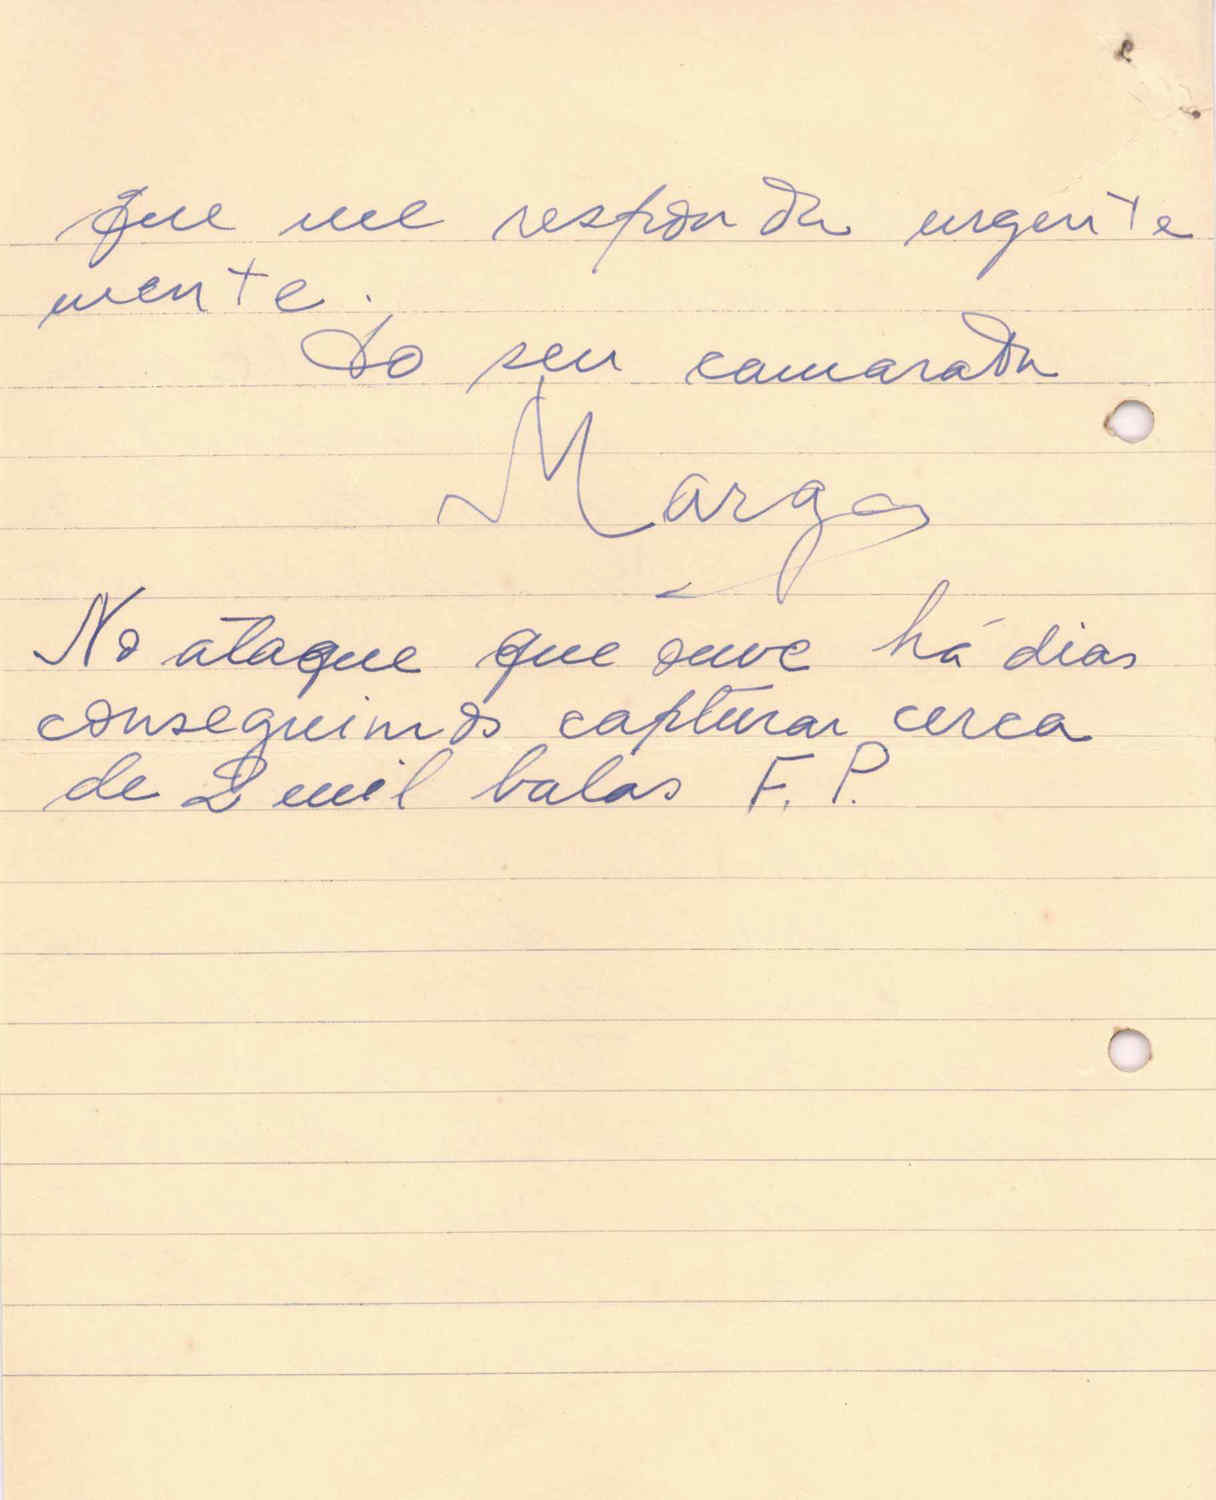 que me responda urgente
mente.
do seu camarada
Marga
No ataque que ouve há dias
conseguimos capturar cerca
de 2 mil balas F. P.